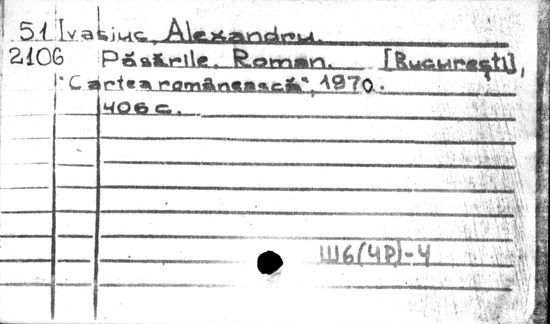 51 Ivasiuc, Alexandru.
2106 Păsările. Roman. [Bucureşti],
"Cartea românească", 1970.
406 c.
Ш6(4Р)-4